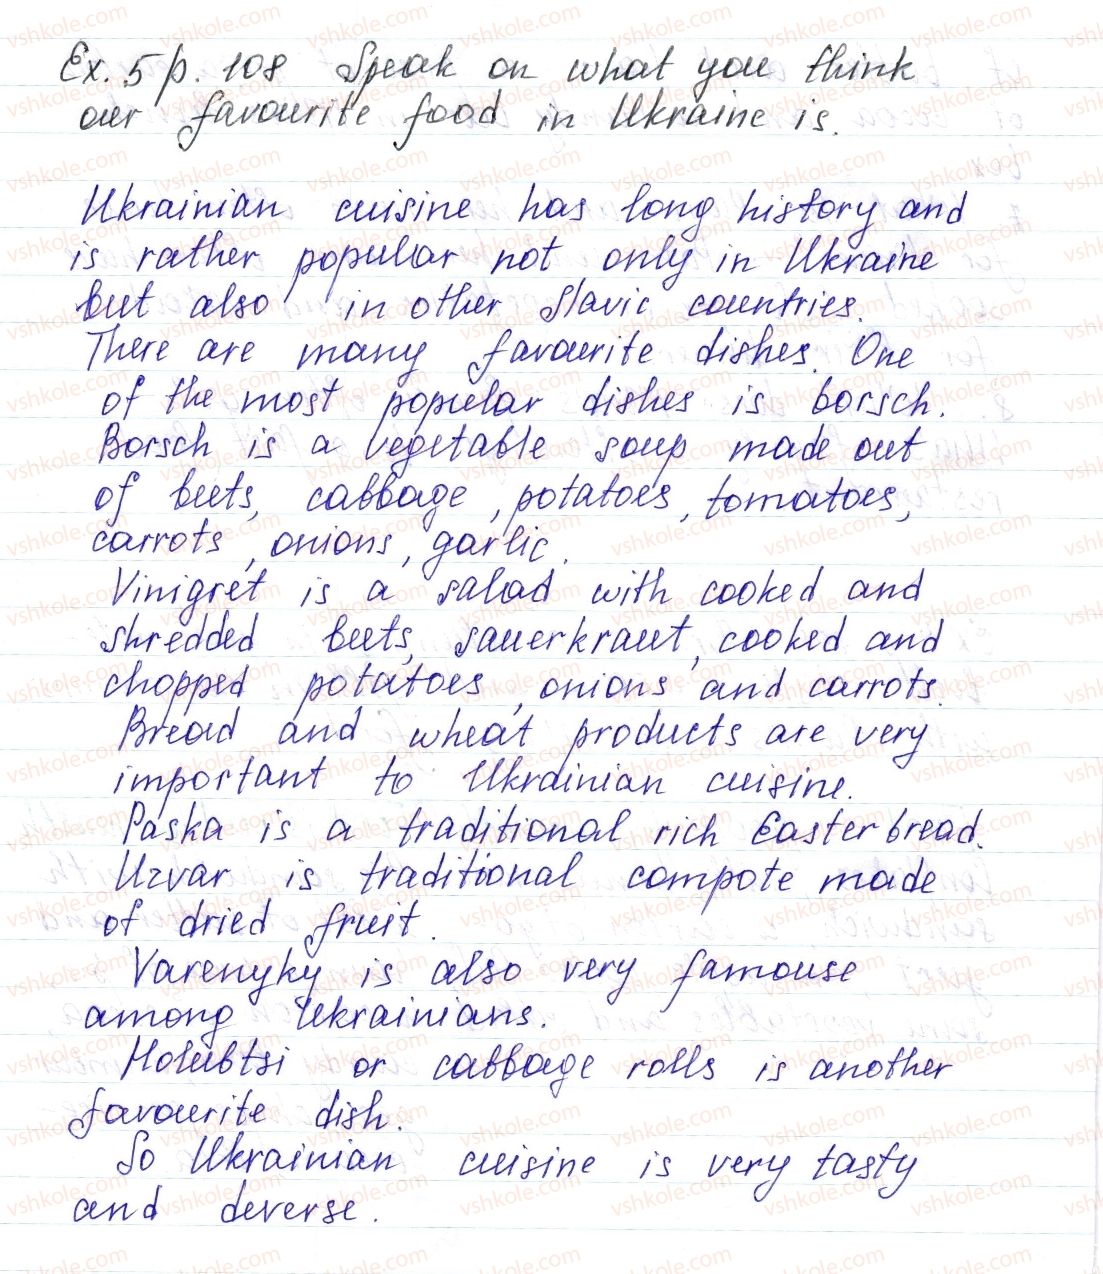 Ex. 5 p. 108 Speak on what you think
our favourite food in Ukraine is.
Ukrainian cuisine has long history and
is rather popular not only in Ukraine
but also in other Slavic countries.
There are many favourite dishes. One
of the most popular dishes is borsch.
Borsch is a vegetable soup made out
of beets, cabbage, potatoes, tomatoes,
carrots, onions, garlic.
Vinigret is a salad with cooked and
shredded beets, sauerkraut, cooked and
chopped potatoes, onions and carrots.
Bread and wheat products are very
important to Ukrainian cuisine.
Paska is a traditional rich Easter bread.
Uzvar is traditional compote made
of dried fruit.
Varenyky is also very famouse
among Ukrainians.
Holubtsi or cabbage rolls is another
favourite dish.
So Ukrainian cuisine is very tasty
and deverse.